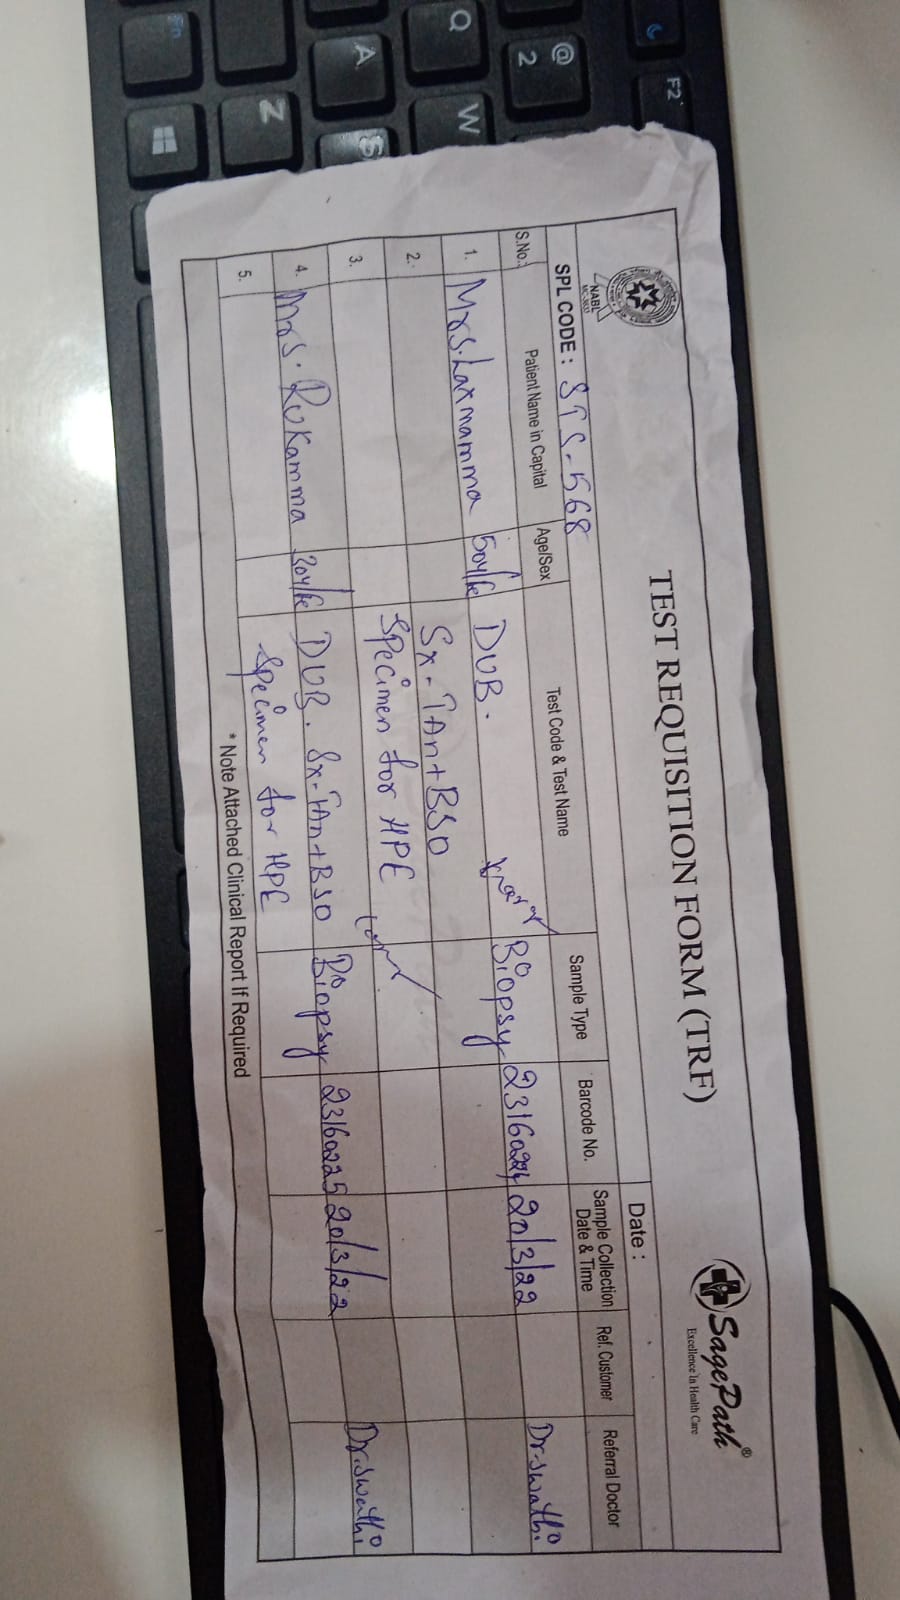 TEST REQUISITION FORM (TRF)
SagePath®
Excellence In Health Care
NABL
Date :
SPL CODE : STS-568
S.No. Patient Name in Capital Age/Sex Test Code & Test Name Sample Type Barcode No. Sample Collection Date & Time Ref. Customer Referral Doctor
1. Mrs. Laxmamma 50y/Fe DUB. Biopsy 20/3/22 Dr. Swathi
2. Sx-TAn+BSO
3. Specimen for HPE
4. Mrs. Rukamma 30y/Fe DUB. Sx-TAn+BSO Biopsy 23160225 20/3/22 Dr. Swathi
5. Specimen for HPE
* Note Attached Clinical Report If Required
Fn
A
Q
@
2
F2
Z
W